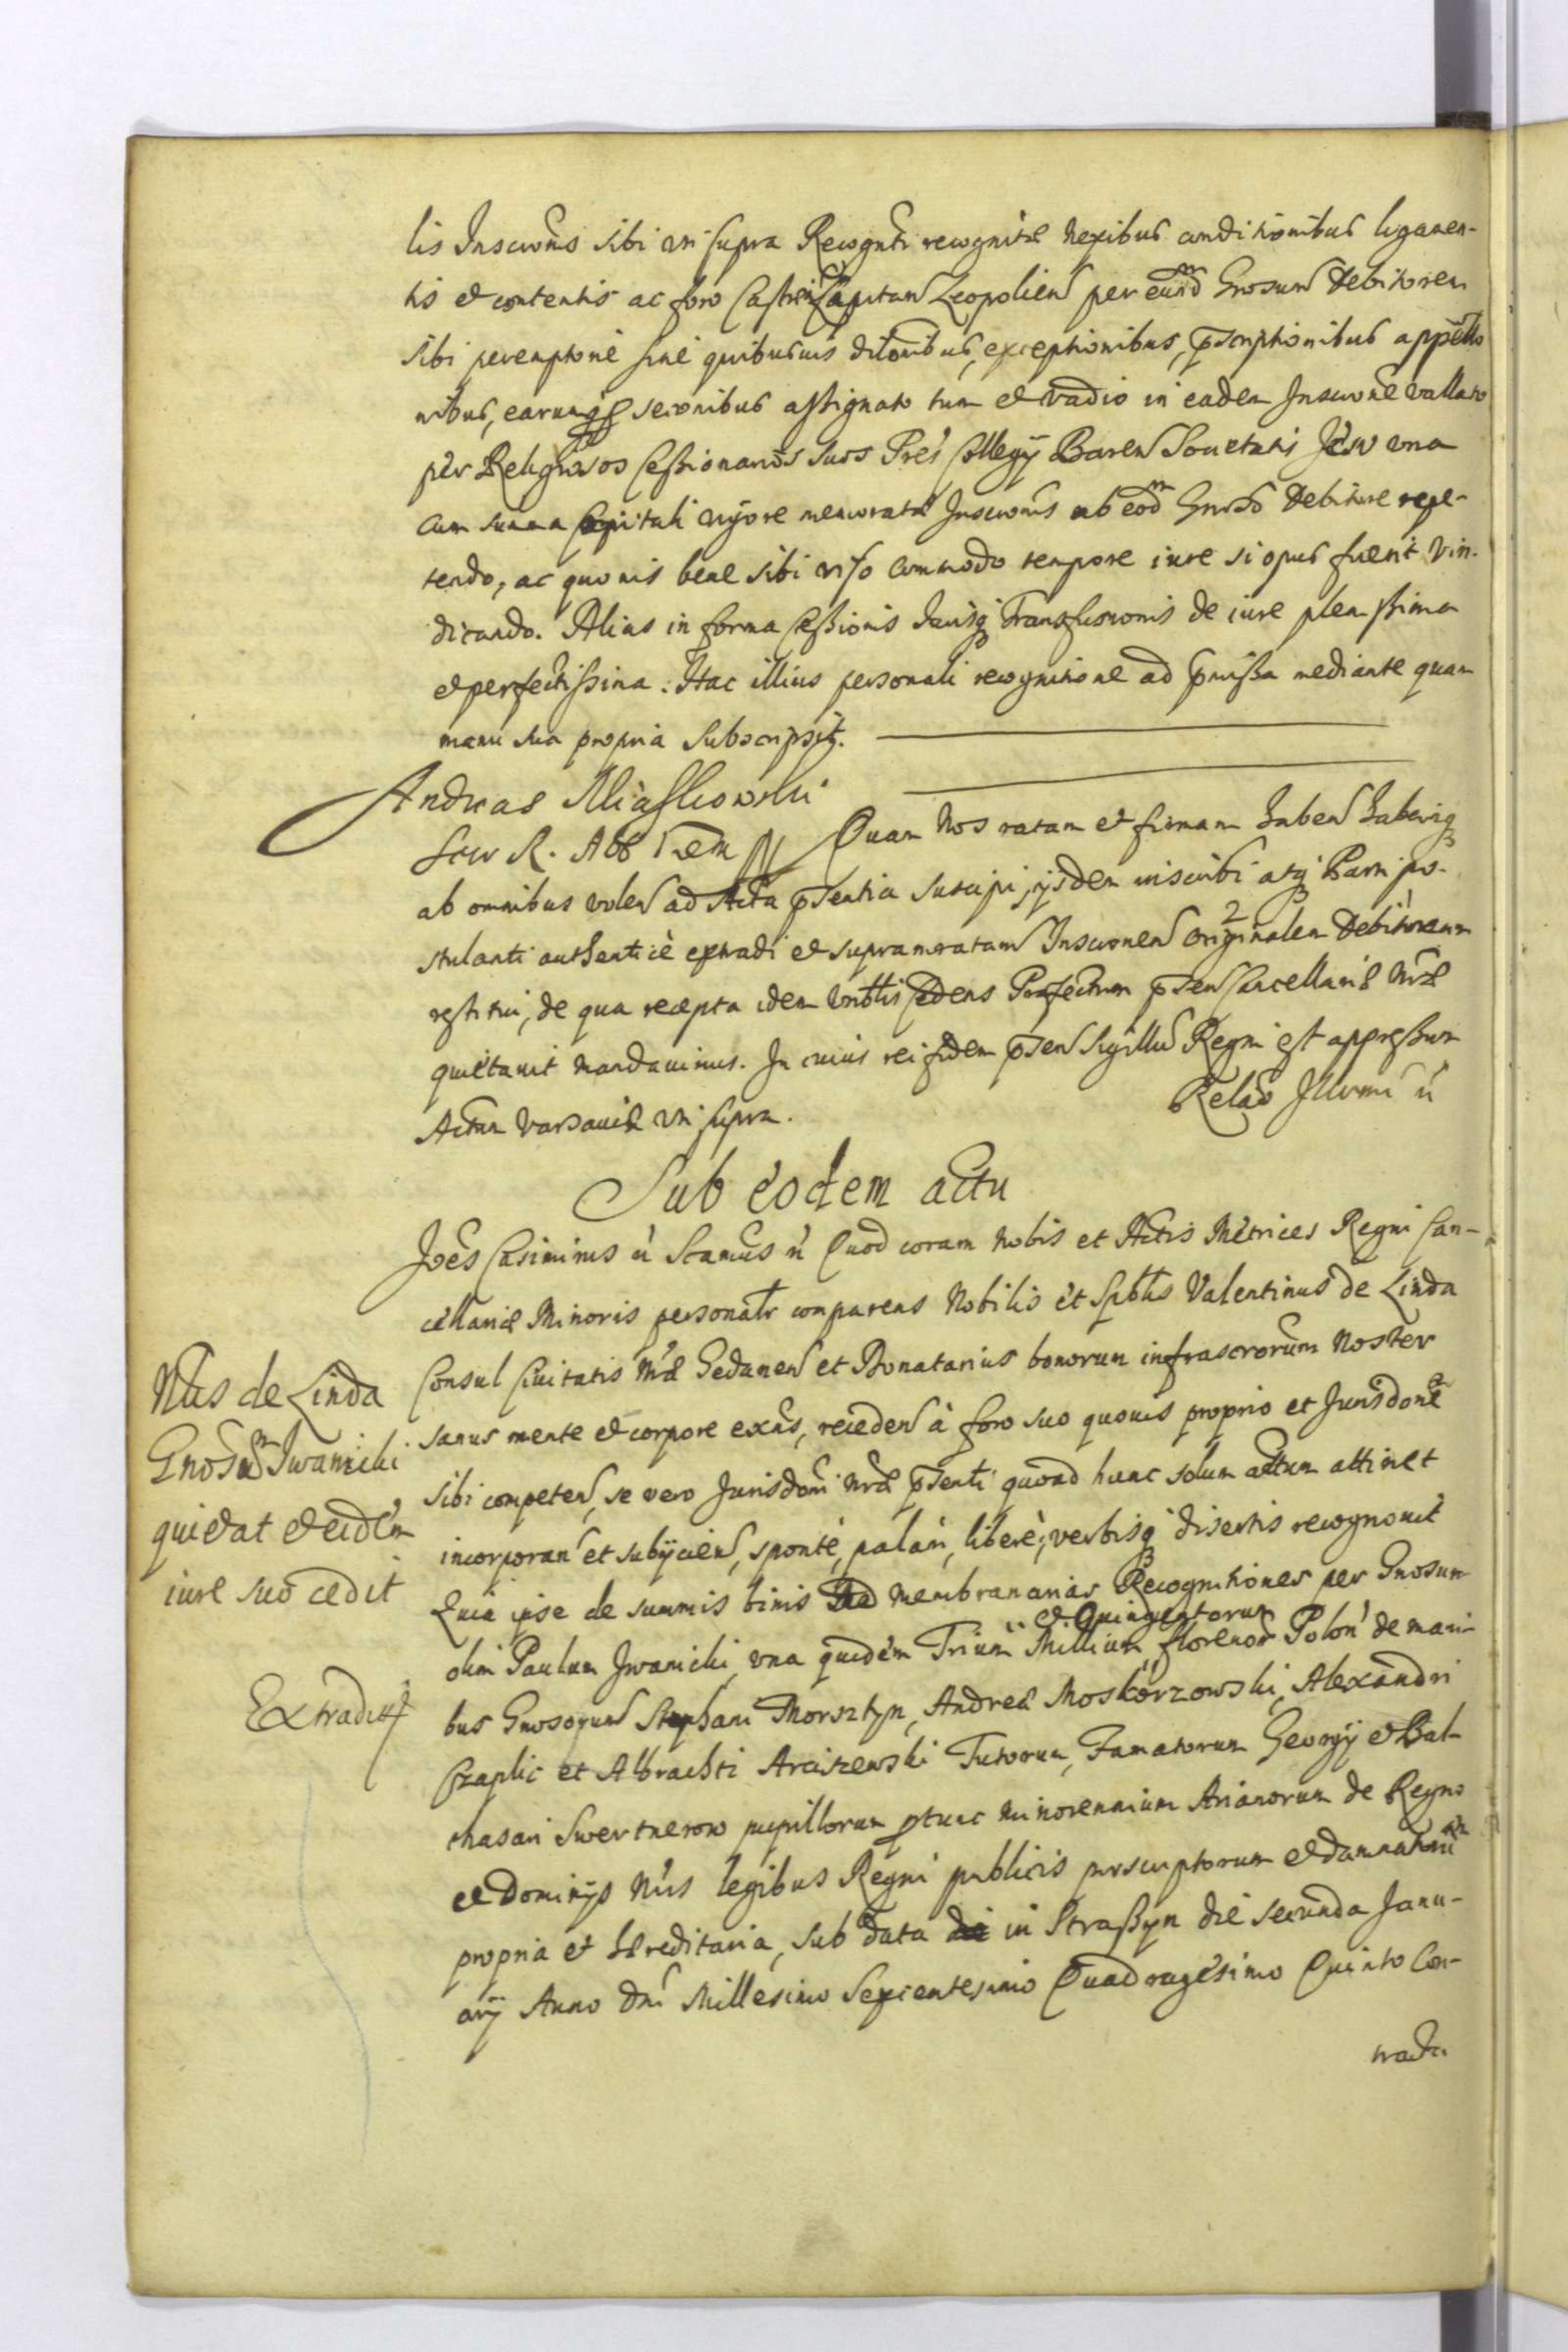 lis Inscrōnis sibi uti supra Recognti recognitæ nexibus conditionibus ligamen-
tis et contentis ac foro Castren Capitan Leopolien per eund Gnosum Debitorem
sibi peremptorie sine quibusuis dilōnibus, exceptionibus, p̄scriptionibus appello
nibus, earumq secōnibus assignato tum et vadio in eadem Inscrōne vallato
per Religiosos Cessionarios suos Pres Collegij Baren Societatis Jesu una
cum summa Capitali vigore memoratæ Inscrōnis ab eod Gnoso Debitore repe-
tendo, ac quouis bene sibi viso commodo tempore iure si opus fuerit vin-
dicando. Alias in forma Cessionis Jurisq Transfusionis de iure plenissima
et perfectissima. Hac illius personali recognitione ad p̄missa mediante quam
manu sua propria subscripsit.
Andreas Miaskowski
Quam Nos ratam et firmam haben haberiq
ab omnibus volen ad Acta p̄sentia suscipi, ijsdem inscribi atq Parti po-
stulanti authentice extradi et suprameratam Inscrōnem originalem Debitoream
restitui, de qua recepta idem Cedens Prefectum p̄sen Cancellariæ Nræ
quietauit mandauimus. In cuius rei fidem p̄sen sigillū Regni est appressum
Actum Varsauiæ uti supra.
Relāo Illvmi ū
Sub eodem actu
Joēs Casimirus ū Scamus ū Quod coram Nobis et Actis Metrices Regni Can-
cellariæ Minoris personalr comparens Nobilis et Spblis Valentinus de Linda
Consul Ciuitatis Nræ Gedanen et Donatarius bonorum infrascrorum Noster
sanus mente et corpore exns, receden à foro suo quouis proprio et Jurisdone
sibi competen, se vero Jurisdoni Nræ p̄senti quoad hunc solum actum attinet
incorporan et subijcien, sponte, palam, libere, verbisq disertis recognouit
Quia ipse de summis binis Ad membranarias Recognitiones per Gnosum
olim Paulum Iwanicki una quidem Trium Millium et Quingentorum florenor Polon de mani-
bus Gnosorum Stephani Morsztyn, Andreæ Moskorzowski, Alexandri
Czaplic et Albrachti Arciszewski Tutorum, Famatorum Georgij et Bal-
thasari Swertnerow pupillorum ptunc minorennium Arianorum de Regno
et Dominijs Nris legibus Regni publicis proscriptorum et damnatorū
propria et Hæreditaria, sub data in Straszyn die secunda Janu-
arij Anno Dni Millesimo Sexcentesimo Quadragesimo Quinto Con-
tracta
Nblis de Linda
Gnosum Iwanicki
quietat et eidem
iure suo cedit
Extradit